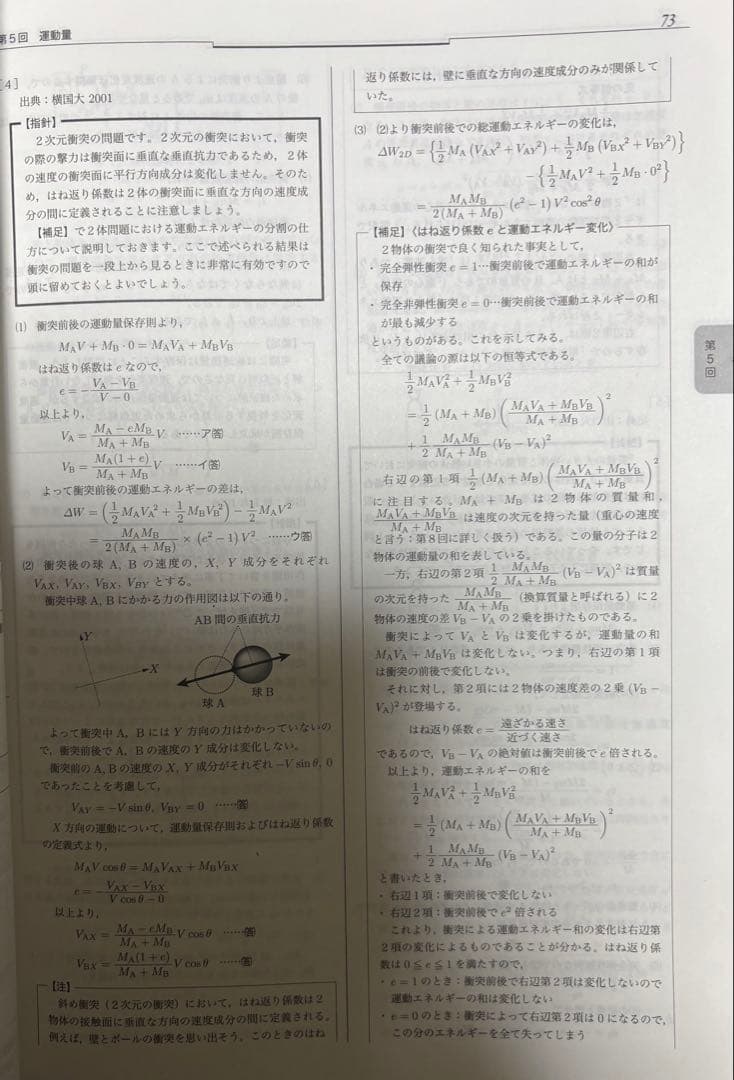 第5回 運動量
73
[4]
出典:横国大 2001
【指針】
2次元衝突の問題です。2次元の衝突において、衝突
の際の撃力は衝突面に垂直な垂直抗力であるため、2体
の速度の衝突面に平行方向成分は変化しません。そのた
め、はね返り係数は2体の衝突面に垂直な方向の速度成
分の間に定義されることに注意しましょう。
【補足】で2体問題における運動エネルギーの分割の仕
方について説明しておきます。ここで述べられる結果は
衝突の問題を一段上から見るときに非常に有効ですので
頭に留めておくとよいでしょう。
(1) 衝突前後の運動量保存則より,
M_A V + M_B・0 = M_A V_A + M_B V_B
はね返り係数は e なので,
e = −(V_A − V_B)/(V − 0)
以上より,
V_A = (M_A − eM_B)/(M_A + M_B) V ……ア答
V_B = M_A(1 + e)/(M_A + M_B) V ……イ答
よって衝突前後の運動エネルギーの差は,
ΔW = (1/2 M_A V_A² + 1/2 M_B V_B²) − 1/2 M_A V²
= M_A M_B/2(M_A + M_B) × (e² − 1) V² ……ウ答
(2) 衝突後の球 A, B の速度の, X, Y 成分をそれぞれ
V_AX, V_AY, V_BX, V_BY とする。
衝突中球 A, B にかかる力の作用図は以下の通り。
AB 間の垂直抗力
Y
X
球 A
球 B
よって衝突中 A, B には Y 方向の力はかかっていないの
で, 衝突前後で A, B の速度の Y 成分は変化しない。
衝突前の A, B の速度の X, Y 成分がそれぞれ −V sin θ, 0
であったことを考慮して,
V_AY = −V sin θ, V_BY = 0 ……答
X 方向の運動について, 運動量保存則およびはね返り係数
の定義式より,
M_A V cos θ = M_A V_AX + M_B V_BX
e = −(V_AX − V_BX)/(V cos θ − 0)
以上より,
V_AX = (M_A − eM_B)/(M_A + M_B) V cos θ ……答
V_BX = M_A(1 + e)/(M_A + M_B) V cos θ ……答
【注】
斜め衝突(2次元の衝突)において, はね返り係数は2
物体の接触面に垂直な方向の速度成分の間に定義される。
例えば, 壁とボールの衝突を思い出そう。このときのはね
返り係数には, 壁に垂直な方向の速度成分のみが関係して
いた。
(3) (2)より衝突前後での総運動エネルギーの変化は,
ΔW_2D = {1/2 M_A (V_AX² + V_AY²) + 1/2 M_B (V_BX² + V_BY²)}
− {1/2 M_A V² + 1/2 M_B・0²}
= M_A M_B/2(M_A + M_B) (e² − 1) V² cos² θ
【補足】〈はね返り係数 e と運動エネルギー変化〉
2物体の衝突で良く知られた事実として,
・完全弾性衝突 e = 1…衝突前後で運動エネルギーの和が
保存
・完全非弾性衝突 e = 0…衝突前後で運動エネルギーの和
が最も減少する
というものがある。これを示してみる。
全ての議論の源は以下の恒等式である。
1/2 M_A V_A² + 1/2 M_B V_B²
= 1/2 (M_A + M_B) ((M_A V_A + M_B V_B)/(M_A + M_B))²
+ 1/2 M_A M_B/(M_A + M_B) (V_B − V_A)²
右辺の第1項 1/2 (M_A + M_B) ((M_A V_A + M_B V_B)/(M_A + M_B))²
に注目する。M_A + M_B は2物体の質量和,
(M_A V_A + M_B V_B)/(M_A + M_B) は速度の次元を持った量(重心の速度
と言う:第8回に詳しく扱う)である。この量の分子は2
物体の運動量の和を表している。
一方, 右辺の第2項 1/2 M_A M_B/(M_A + M_B) (V_B − V_A)² は質量
の次元を持った M_A M_B/(M_A + M_B) (換算質量と呼ばれる)に2
物体の速度の差 V_B − V_A の2乗を掛けたものである。
衝突によって V_A と V_B は変化するが, 運動量の和
M_A V_A + M_B V_B は変化しない。つまり, 右辺の第1項
は衝突の前後で変化しない。
それに対し, 第2項には2物体の速度差の2乗 (V_B −
V_A)² が登場する。
はね返り係数 e = 遠ざかる速さ/近づく速さ
であるので, V_B − V_A の絶対値は衝突前後で e 倍される。
以上より, 運動エネルギーの和を
1/2 M_A V_A² + 1/2 M_B V_B²
= 1/2 (M_A + M_B) ((M_A V_A + M_B V_B)/(M_A + M_B))²
+ 1/2 M_A M_B/(M_A + M_B) (V_B − V_A)²
と書いたとき,
・右辺1項:衝突前後で変化しない
・右辺2項:衝突前後で e² 倍される
これより, 衝突による運動エネルギー和の変化は右辺第
2項の変化によるものであることが分かる。はね返り係
数は 0 ≦ e ≦ 1 を満たすので,
・e = 1 のとき:衝突前後で右辺第2項は変化しないので
運動エネルギーの和は変化しない
・e = 0 のとき:衝突によって右辺第2項は0になるので,
この分のエネルギーを全て失ってしまう
第5回